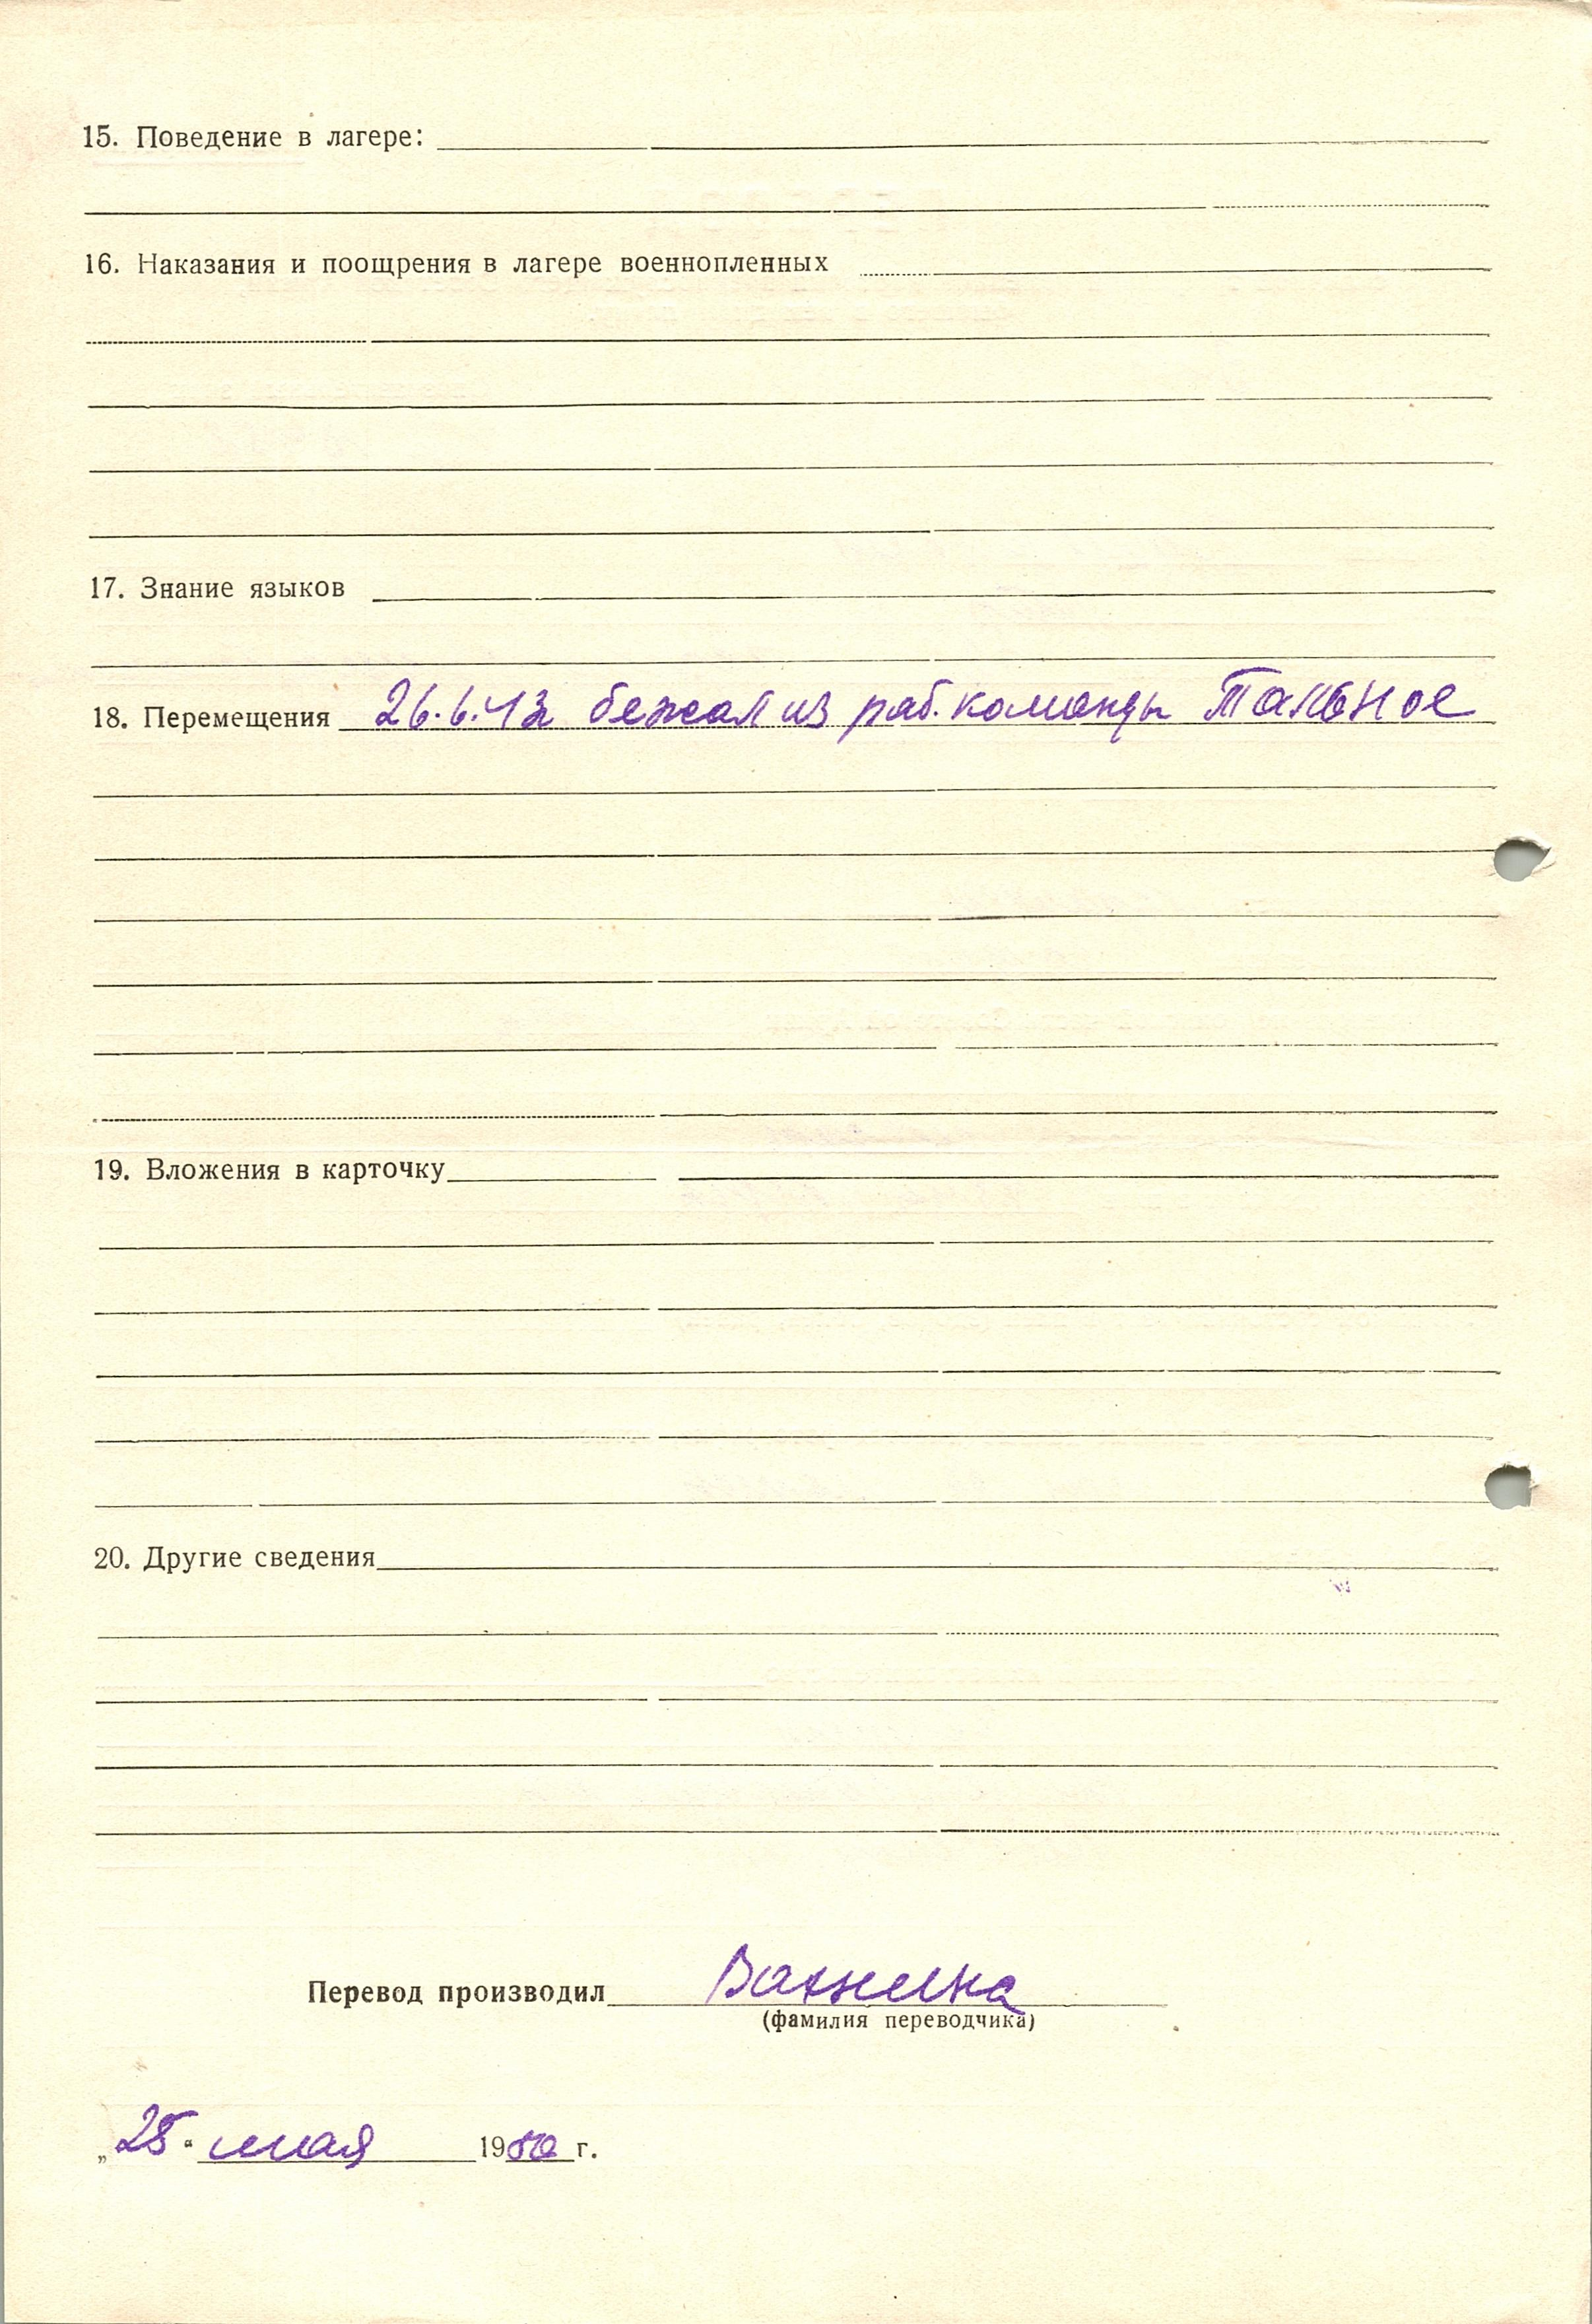 15. Поведение в лагере:
16. Наказания и поощрения в лагере военнопленных
17. Знание языков
18. Перемещения 26.6.43 бежал из раб. команды Тальное
19. Вложения в карточку
20. Другие сведения
Перевод производил
(фамилия переводчика)
„25“ мая 1950 г.